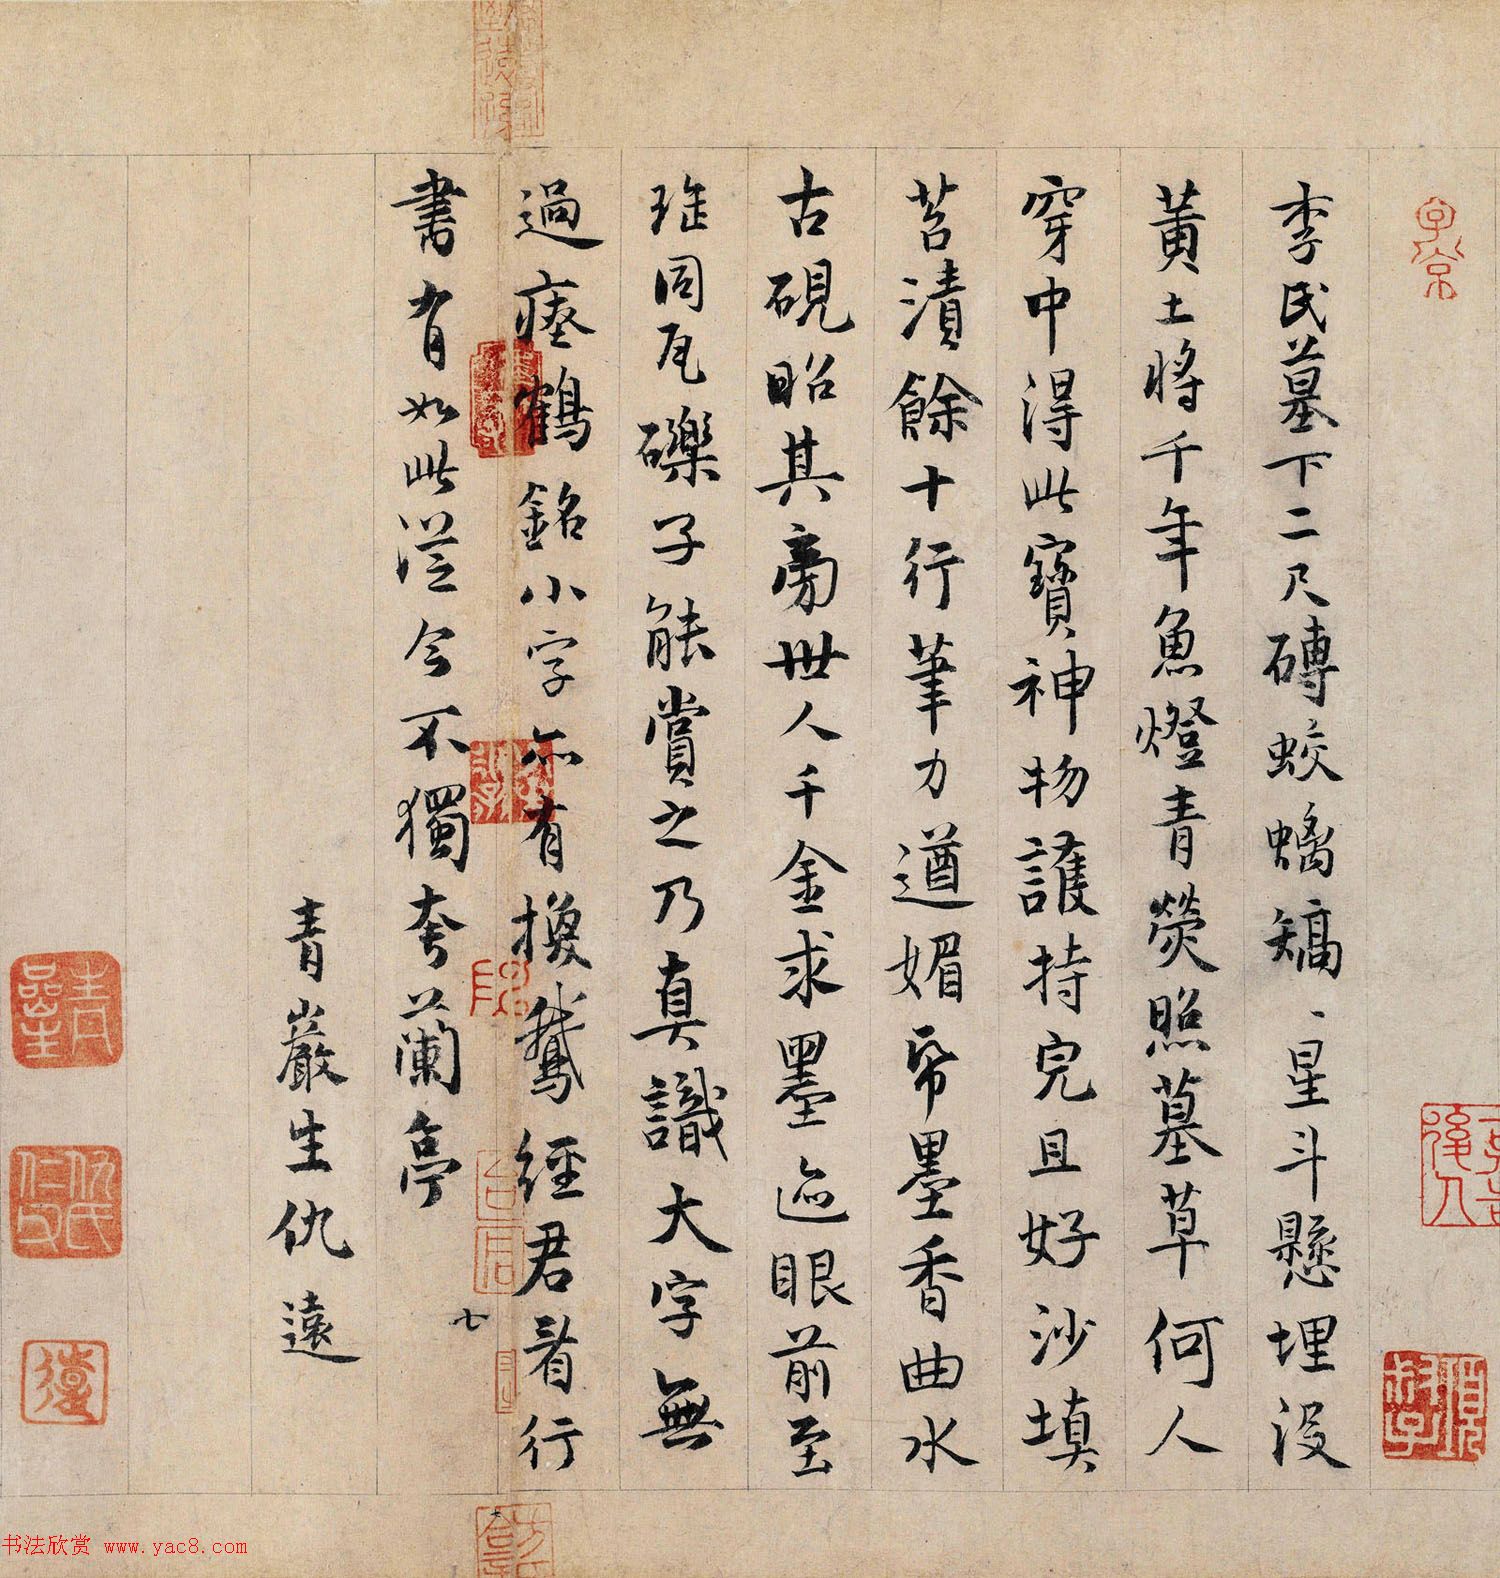 李氏墓下二尺磚蛟螭矯、星斗懸埋没
黄土將千年魚燈青熒照墓草何人
穿中得此寶神物護持完且好沙填
苔漬餘十行筆力遒媚帋墨香曲水
古硯昭其旁世人千金求墨迹眼前至
珤同瓦礫子能賞之乃真識大字無
過瘞鶴銘小字亦有換鵝經君看行
書有如此從今不獨夸蘭亭
青巖生仇遠
七
书法欣赏 www.yac8.com